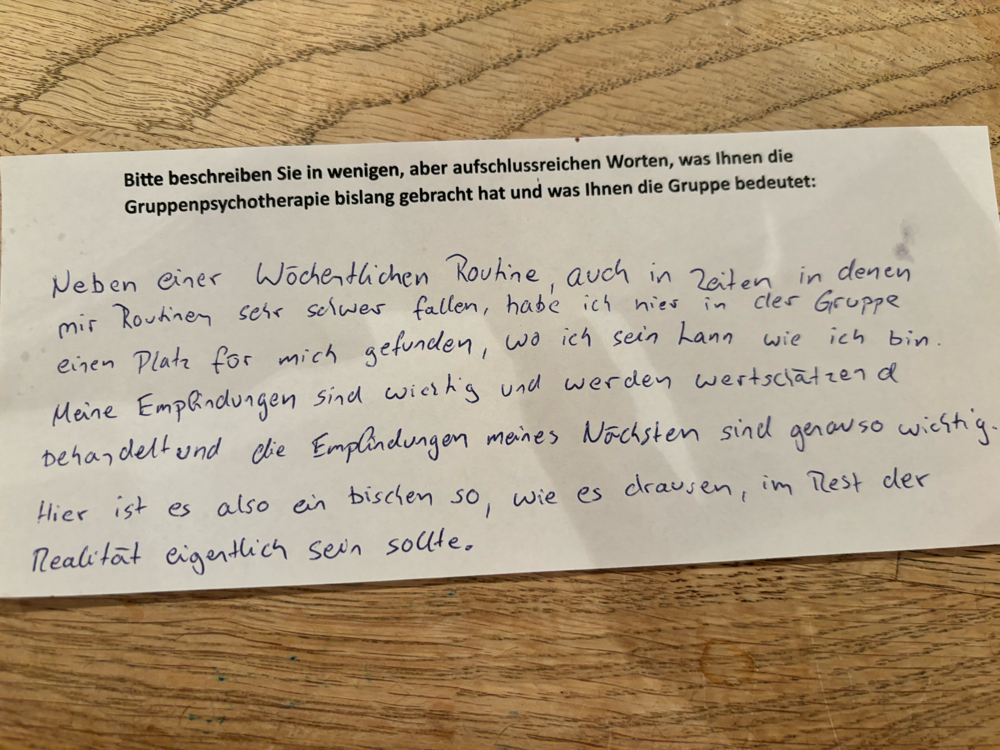 Bitte beschreiben Sie in wenigen, aber aufschlussreichen Worten, was Ihnen die
Gruppenpsychotherapie bislang gebracht hat und was Ihnen die Gruppe bedeutet:
Neben einer Wöchentlichen Routine, auch in Zeiten in denen
mir Routinen sehr schwer fallen, habe ich hier in der Gruppe
einen Platz für mich gefunden, wo ich sein kann wie ich bin.
Meine Empfindungen sind wichtig und werden wertschätzend
behandelt und die Empfindungen meines Nächsten sind genauso wichtig.
Hier ist es also ein bischen so, wie es drausen, im Rest der
Realität eigentlich sein sollte.